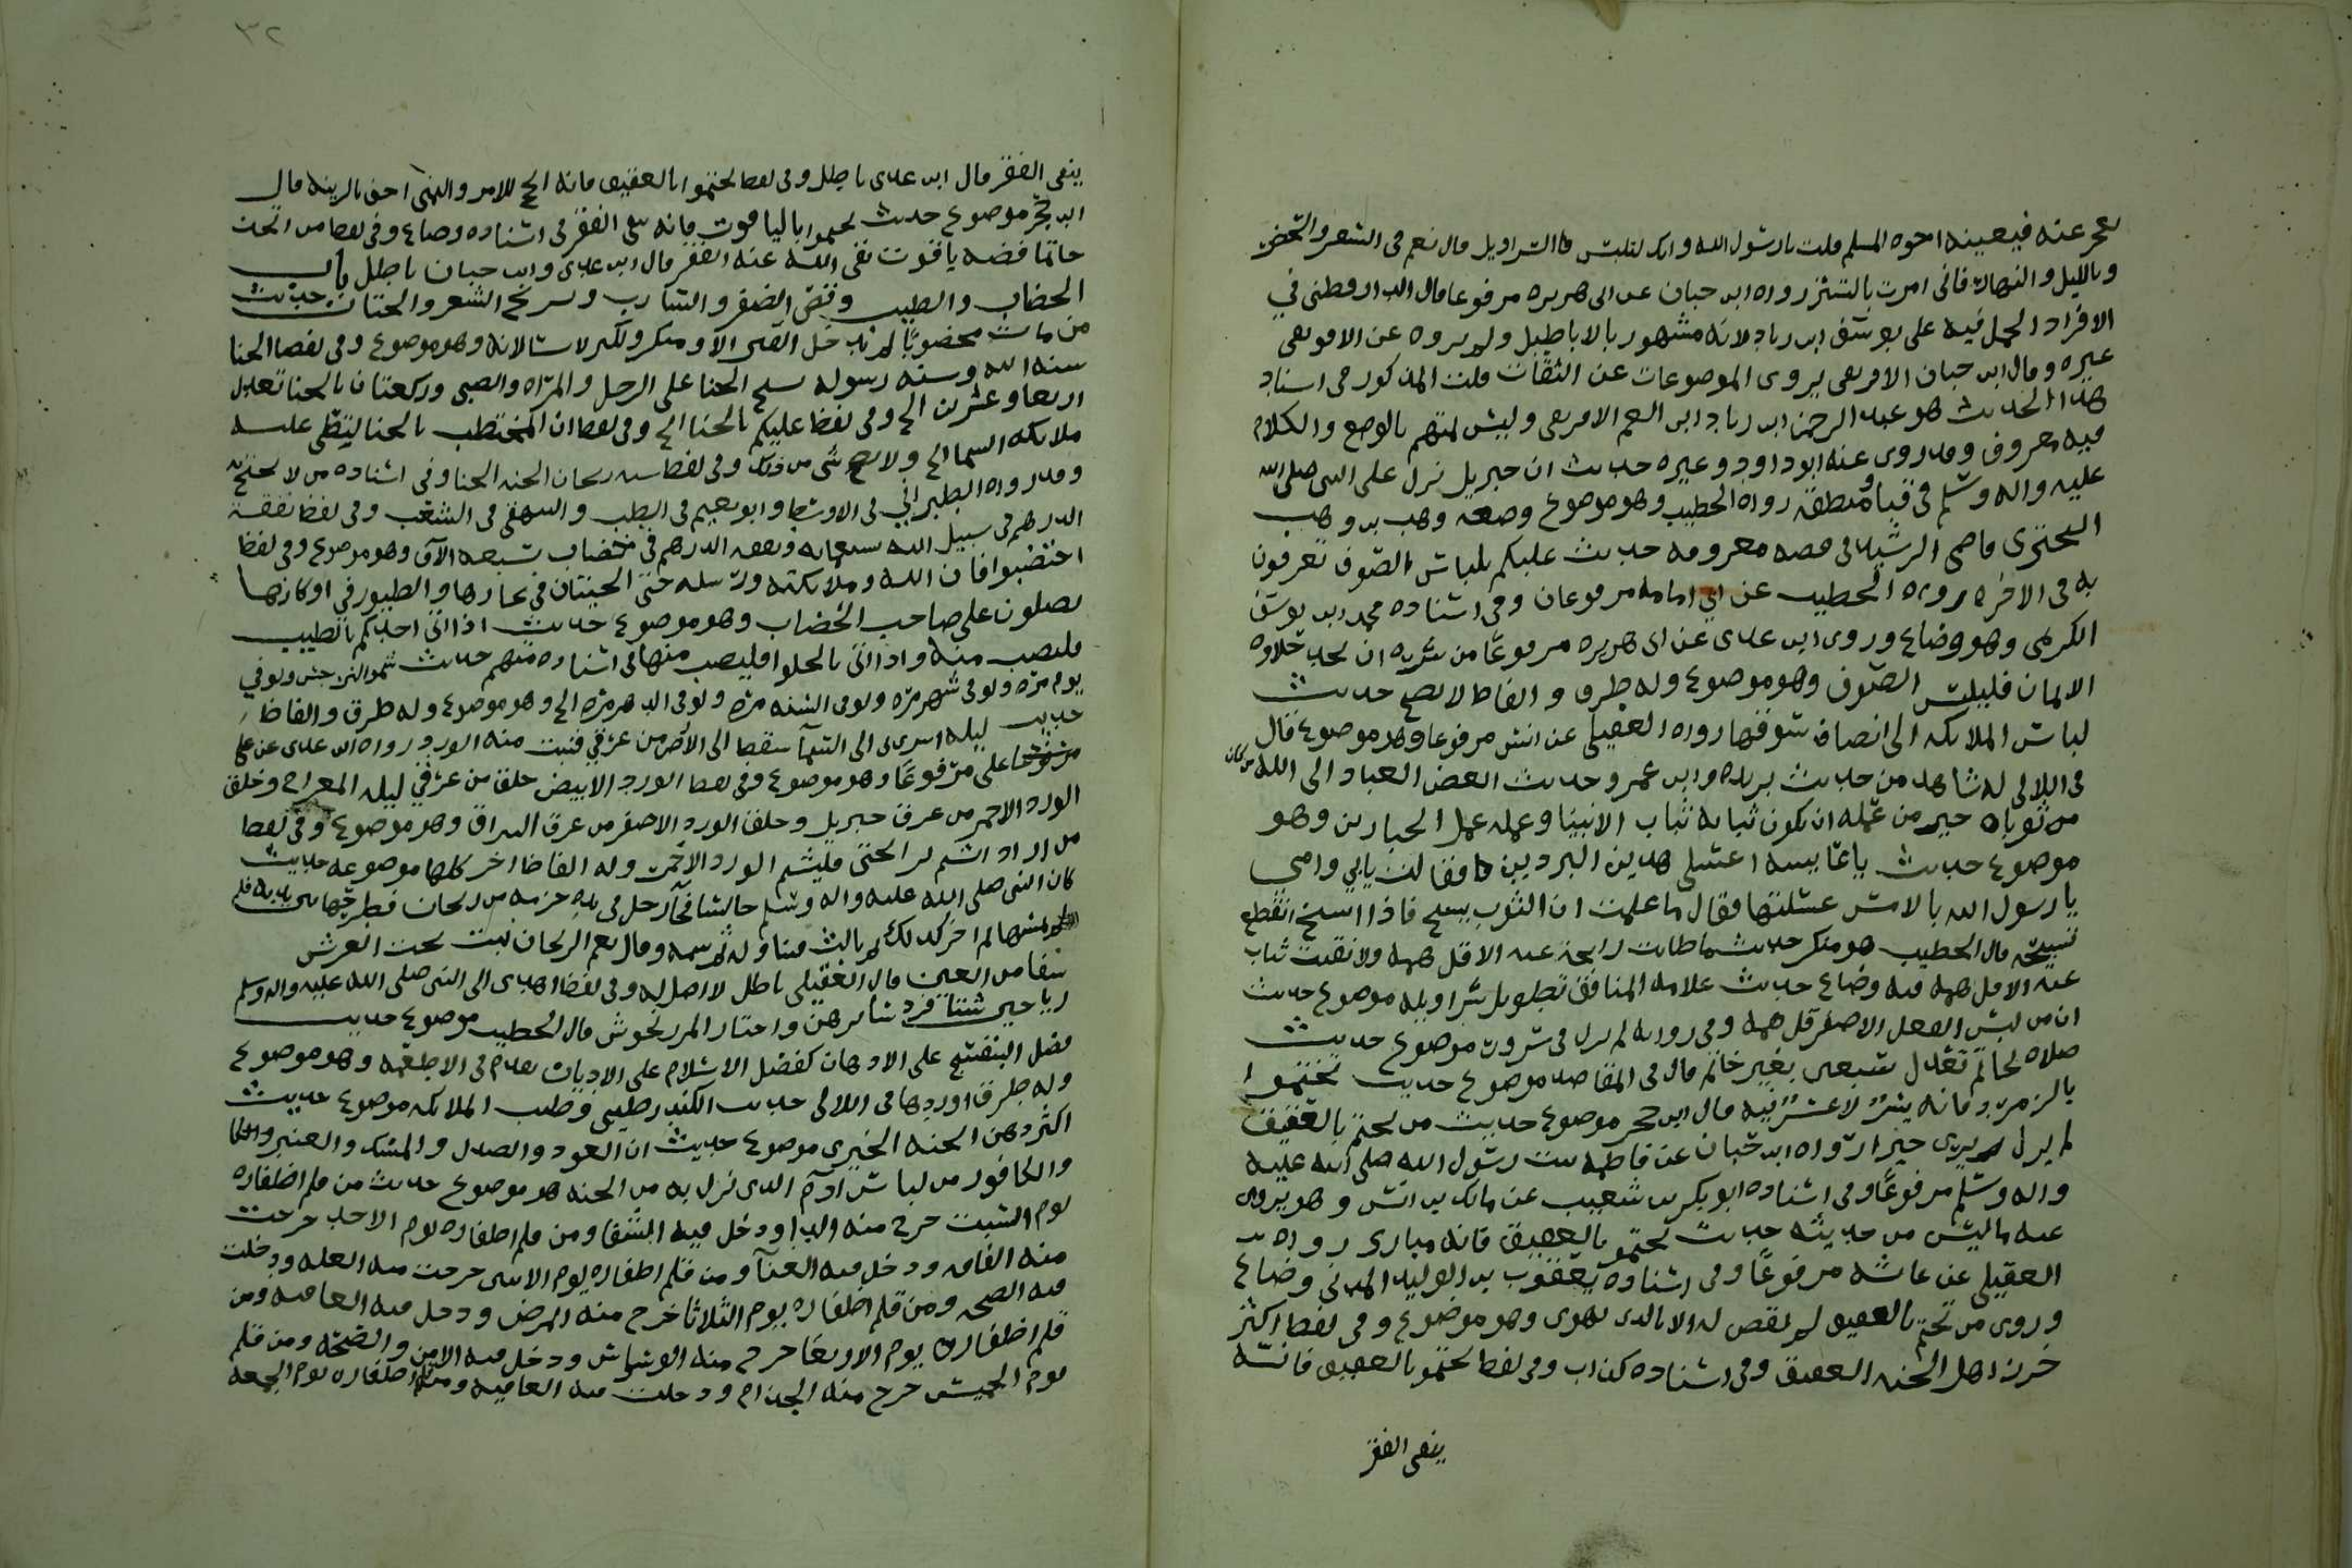 يعجز عنه فيعينه اخوه المسلم قلت يا رسول الله وانك لتلبس السراويل قال نعم فى السفر والحضر
وبالليل والنهار فانى امرت بالتستر رواه ابن حبان عن ابى هريره مرفوعا قال الدارقطنى في
الافراد الحمل فيه على يوسف ابن زياد لانه مشهور بالاباطيل ولم يروه عن الافريقى
غيره وقال ابن حبان الافريقى يروى الموضوعات عن الثقات قلت المذكور فى اسناد
هذا الحديث هو عبد الرحمن ابن زياد ابن انعم الافريقى وليس بمتهم بالوضع والكلام
فيه معروف وقد روى عنه ابو داود وغيره حديث ان جبريل نزل على النبى صلى الله
عليه واله وسلم في قبا ومنطقه رواه الخطيب وهو موضوع وضعه وهب بن وهب
البختري قاضى الرشيد فى قصه معروفه حديث عليكم بلباس الصوف تعرفون
به فى الاخره رواه الخطيب عن ابي امامه مرفوعا وفى اسناده محمد ابن يوسف
الكديمى وهو وضاع وروى ابن عدى عن ابى هريره مرفوعا من سره ان يجد حلاوه
الايمان فليلبس الصوف وهو موضوع وله طرق والفاظ لا تصح حديث
لباس الملائكه الى انصاف سوقها رواه العقيلى عن انس مرفوعا وهو موضوع قال
فى اللالى له شاهد من حديث بريده وابن عمر وحديث ابغض العباد الى الله من كان
من ثوباه خير من عمله ان يكون ثيابه ثياب الانبيا وعمله عمل الجبارين وهو
موضوع حديث يا عايشه اغسلى هذين البردين فقالت بابي وامى
يا رسول الله بالامس غسلتهما فقال ما علمت ان الثوب يسبح فاذا اتسخ انقطع
تسبيحه قال الخطيب هو منكر حديث ما طابت رايحة عبد الا قل همه ولا نقيت ثياب
عبد الا قل همه فيه وضاع حديث علامه المنافق تطويل سراويله موضوع حديث
ان من لبس النعل الاصفر قل همه وفى روايه لم يزل فى سرور موضوع حديث
صلاه بخاتم تعدل سبعين بغير خاتم قال فى المقاصد موضوع حديث تختموا
بالزمرد فانه يسر لا عسر فيه قال ابن حجر موضوع حديث من تختم بالعقيق
لم يزل يرى خيرا رواه ابن حبان عن فاطمه بنت رسول الله صلى الله عليه
واله وسلم مرفوعا وفى اسناده ابو بكر بن شعيب عن مالك بن انس وهو يروى
عنه ما ليس من حديثه حديث تختموا بالعقيق فانه مبارك رواه
العقيلى عن عائشه مرفوعا وفى اسناده يعقوب بن الوليد المدنى وضاع
وروى من تختم بالعقيق لم يقض له الا بالذى يهوى وهو موضوع وفى لفظ اكثر
خرز اهل الجنه العقيق وفى اسناده كذاب وفى لفظ تختموا بالعقيق فانه
ينفى الفقر
٣٢
ينفى الفقر قال ابن عدى باطل وفى لفظ تختموا بالعقيق فانه انجح للامر واليمنى احق بالزينه قال
ابن حجر موضوع حديث تختموا بالياقوت فانه ينفى الفقر فى اسناده وضاع وفى لفظ من اتخذ
خاتما فصه ياقوت نفى الله عنه الفقر قال ابن عدى وابن حبان باطل باب
الخضاب والطيب وقص الظفر والشارب وتسريح الشعر والختان حديث
من مات مخضوبا لم يدخل القبر الا ومنكر ونكير لا يسالانه وهو موضوع وفى لفظ الحنا
سنه الله وسنه رسوله يسبح الحنا على الرجل والمراه والصبى وركعتان بالحنا تعدل
اربعا وعشرين الخ وفى لفظ عليكم بالحنا الخ وفى لفظ ان المختضب بالحنا ليصلى عليه
ملائكه السما الخ ولا يصح شى من ذلك وفى لفظ سيد ريحان الجنه الحنا وفى اسناده من لا يحتج به
وقد رواه الطبراني فى الاوسط وابو نعيم فى الطب والبيهقى فى الشعب وفى لفظ نفقه
الدرهم فى سبيل الله بسبعمايه ونفقه الدرهم في خضاب بسبعه الاف وهو موضوع وفى لفظ
اختضبوا فان الله وملائكته ورسله حتى الحيتان في بحارها والطيور في اوكارها
يصلون على صاحب الخضاب وهو موضوع حديث اذا اتى احدكم بالطيب
فليصب منه واذا اتى بالحلوا فليصب منها فى اسناده متهم حديث شموا النرجس ولو في
يوم مره ولو فى شهر مره ولو فى السنه مره ولو فى الدهر مره الخ وهو موضوع وله طرق والفاظ
حديث ليله اسرى بى الى السما سقط الى الارض من عرقي فنبت منه الورد رواه ابن عدى عن على
مرفوعا وهو موضوع وفى لفظ الورد الابيض خلق من عرقي ليله المعراج وخلق
الورد الاحمر من عرق جبريل وخلق الورد الاصفر من عرق البراق وهو موضوع وفى لفظ
من اراد ان يشم رايحتى فليشم الورد الاحمر وله الفاظ اخر كلها موضوعه حديث
كان النبى صلى الله عليه واله وسلم جالسا فجا رجل فى يده حزمه من ريحان فطرحها بين يديه فلم
يمسها ثم اخر كذلك ثم ثالث فتناوله ثم شمه وقال نعم الريحان نبت تحت العرش
شفا من العين قال العقيلى باطل لا اصل له وفى لفظ اهدى الى النبى صلى الله عليه واله وسلم
رياحين شتى فرد سايرهن واختار المرزنجوش قال الخطيب موضوع حديث
فضل البنفسج على الادهان كفضل الاسلام على الاديان تقدم فى الاطعمه وهو موضوع
وله طرق اوردها فى اللالى حديث الكندر طيبى وطيب الملائكه موضوع حديث
اكثر دهن الجنه الخيرى موضوع حديث ان العود والصندل والمسك والعنبر
والكافور من لباس ادم الذى نزل به من الجنه هو موضوع حديث من قلم اظفاره
يوم السبت خرج منه الدا ودخل فيه الشفا ومن قلم اظفاره يوم الاحد خرجت
منه الفاقه ودخل فيه الغنا ومن قلم اظفاره يوم الاثنين خرجت منه العله ودخلت
فيه الصحه ومن قلم اظفاره يوم الثلاثا خرج منه المرض ودخل فيه العافيه ومن
قلم اظفاره يوم الاربعا خرج منه الوسواس ودخل فيه الامن والصحه ومن قلم
يوم الخميس خرج منه الجذام ودخلت فيه العافيه ومن قلم اظفاره يوم الجمعه